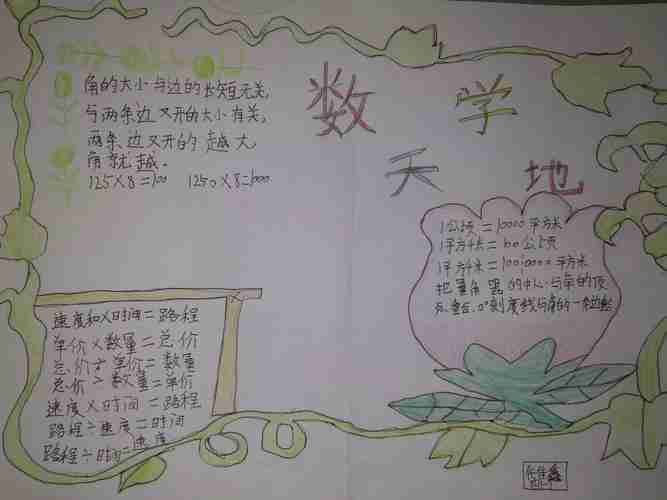 数学
天地
角的大小与边的长短无关,
与两条边叉开的大小有关,
两条边叉开的越大,
角就越.
125×8=100 1250×8=1000
1公顷=10000平方米
1平方千米=100公顷
1平方千米=1000000平方米
把量角器的中心与角的顶
点重合,0°刻度线与角的一条边
速度和×时间=路程
单价×数量=总价
总价÷单价=数量
总价÷数量=单价
速度×时间=路程
路程÷速度=时间
路程÷时间=速度